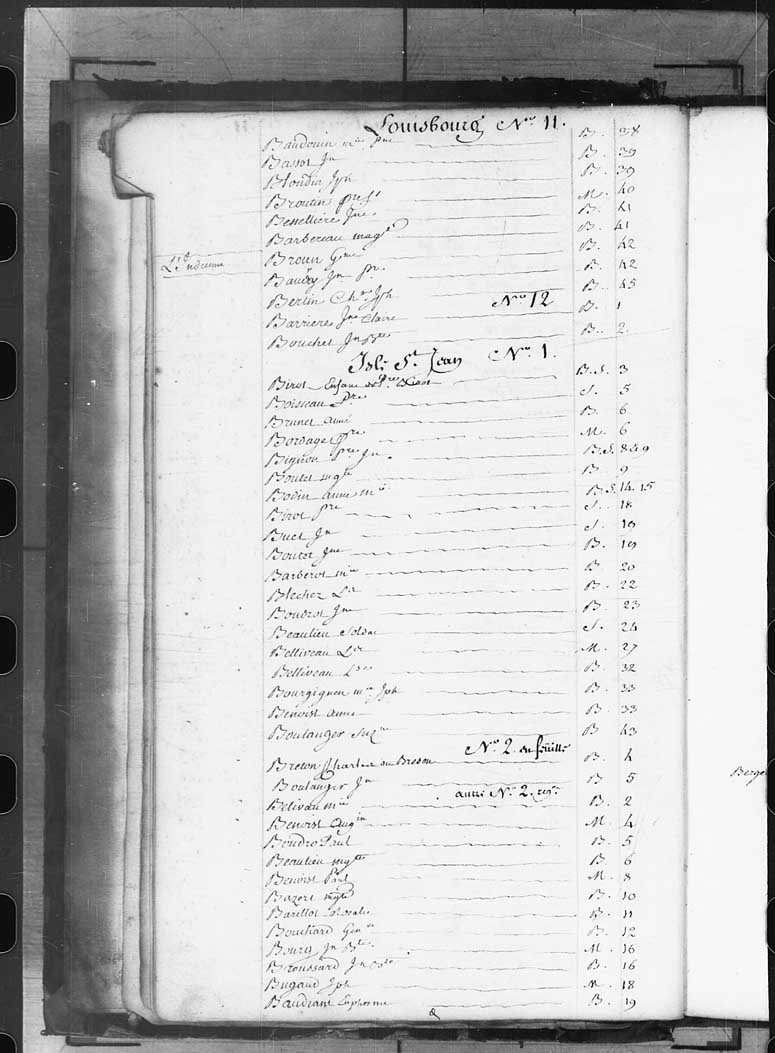 Louisbourg Nro 11.
Baudouin mie pne B. 38
Bassot Jn B. 39
Blondin Jph B. 39
Broutin M. 40
Besselliere Jne B. 41
Barbereau magte B. 41
L'Indienne Broun Gme B. 42
Baudry Jn pre B. 42
Bertin Chs Jph B. 45
Nro 12
Barriere Jne Claire B. 1
Bouchet Jn Bte B. 2
Isle St Jean Nro 1.
Birot Enfant de Pre Birot B.S. 3
Boisseau Pre S. 5
Brunet aimé B. 6
Bordage pre M. 6
Bignon pre Jn B.S. 8 & 9
Boutet mgte B. 9
Bodin anne mie B.S. 14. 15
Birot pre S. 18
Buet Jn S. 19
Boutet Jne B. 19
Barberot mie B. 20
Blechez B. 22
Boudrot Jne B. 23
Beaulieu Soldat S. 24
Belliveau M. 27
Belliveau B. 32
Bourgignon mie Jph B. 33
Benoist anne B. 33
Boulanger Suzne B 43
Nro 2. en feuille
Breton Charles ou Breson B. 4
Boulanger Jn B 5
autre No. 2. regre
Belivau mie B. 2
Benoist Augin M. 4
Boudro Paul B. 5
Beaulieu mgte B. 6
Benoist Paul M. 8
Bazert mgte B. 10
Barillot Rosalie B. 11
Bouchard Genve B. 12
Bourg Jn Bte M. 16
Broussard Jn Bte B. 16
Bugaud Jph M. 18
Baudrant Euphrosine B. 19
Berge